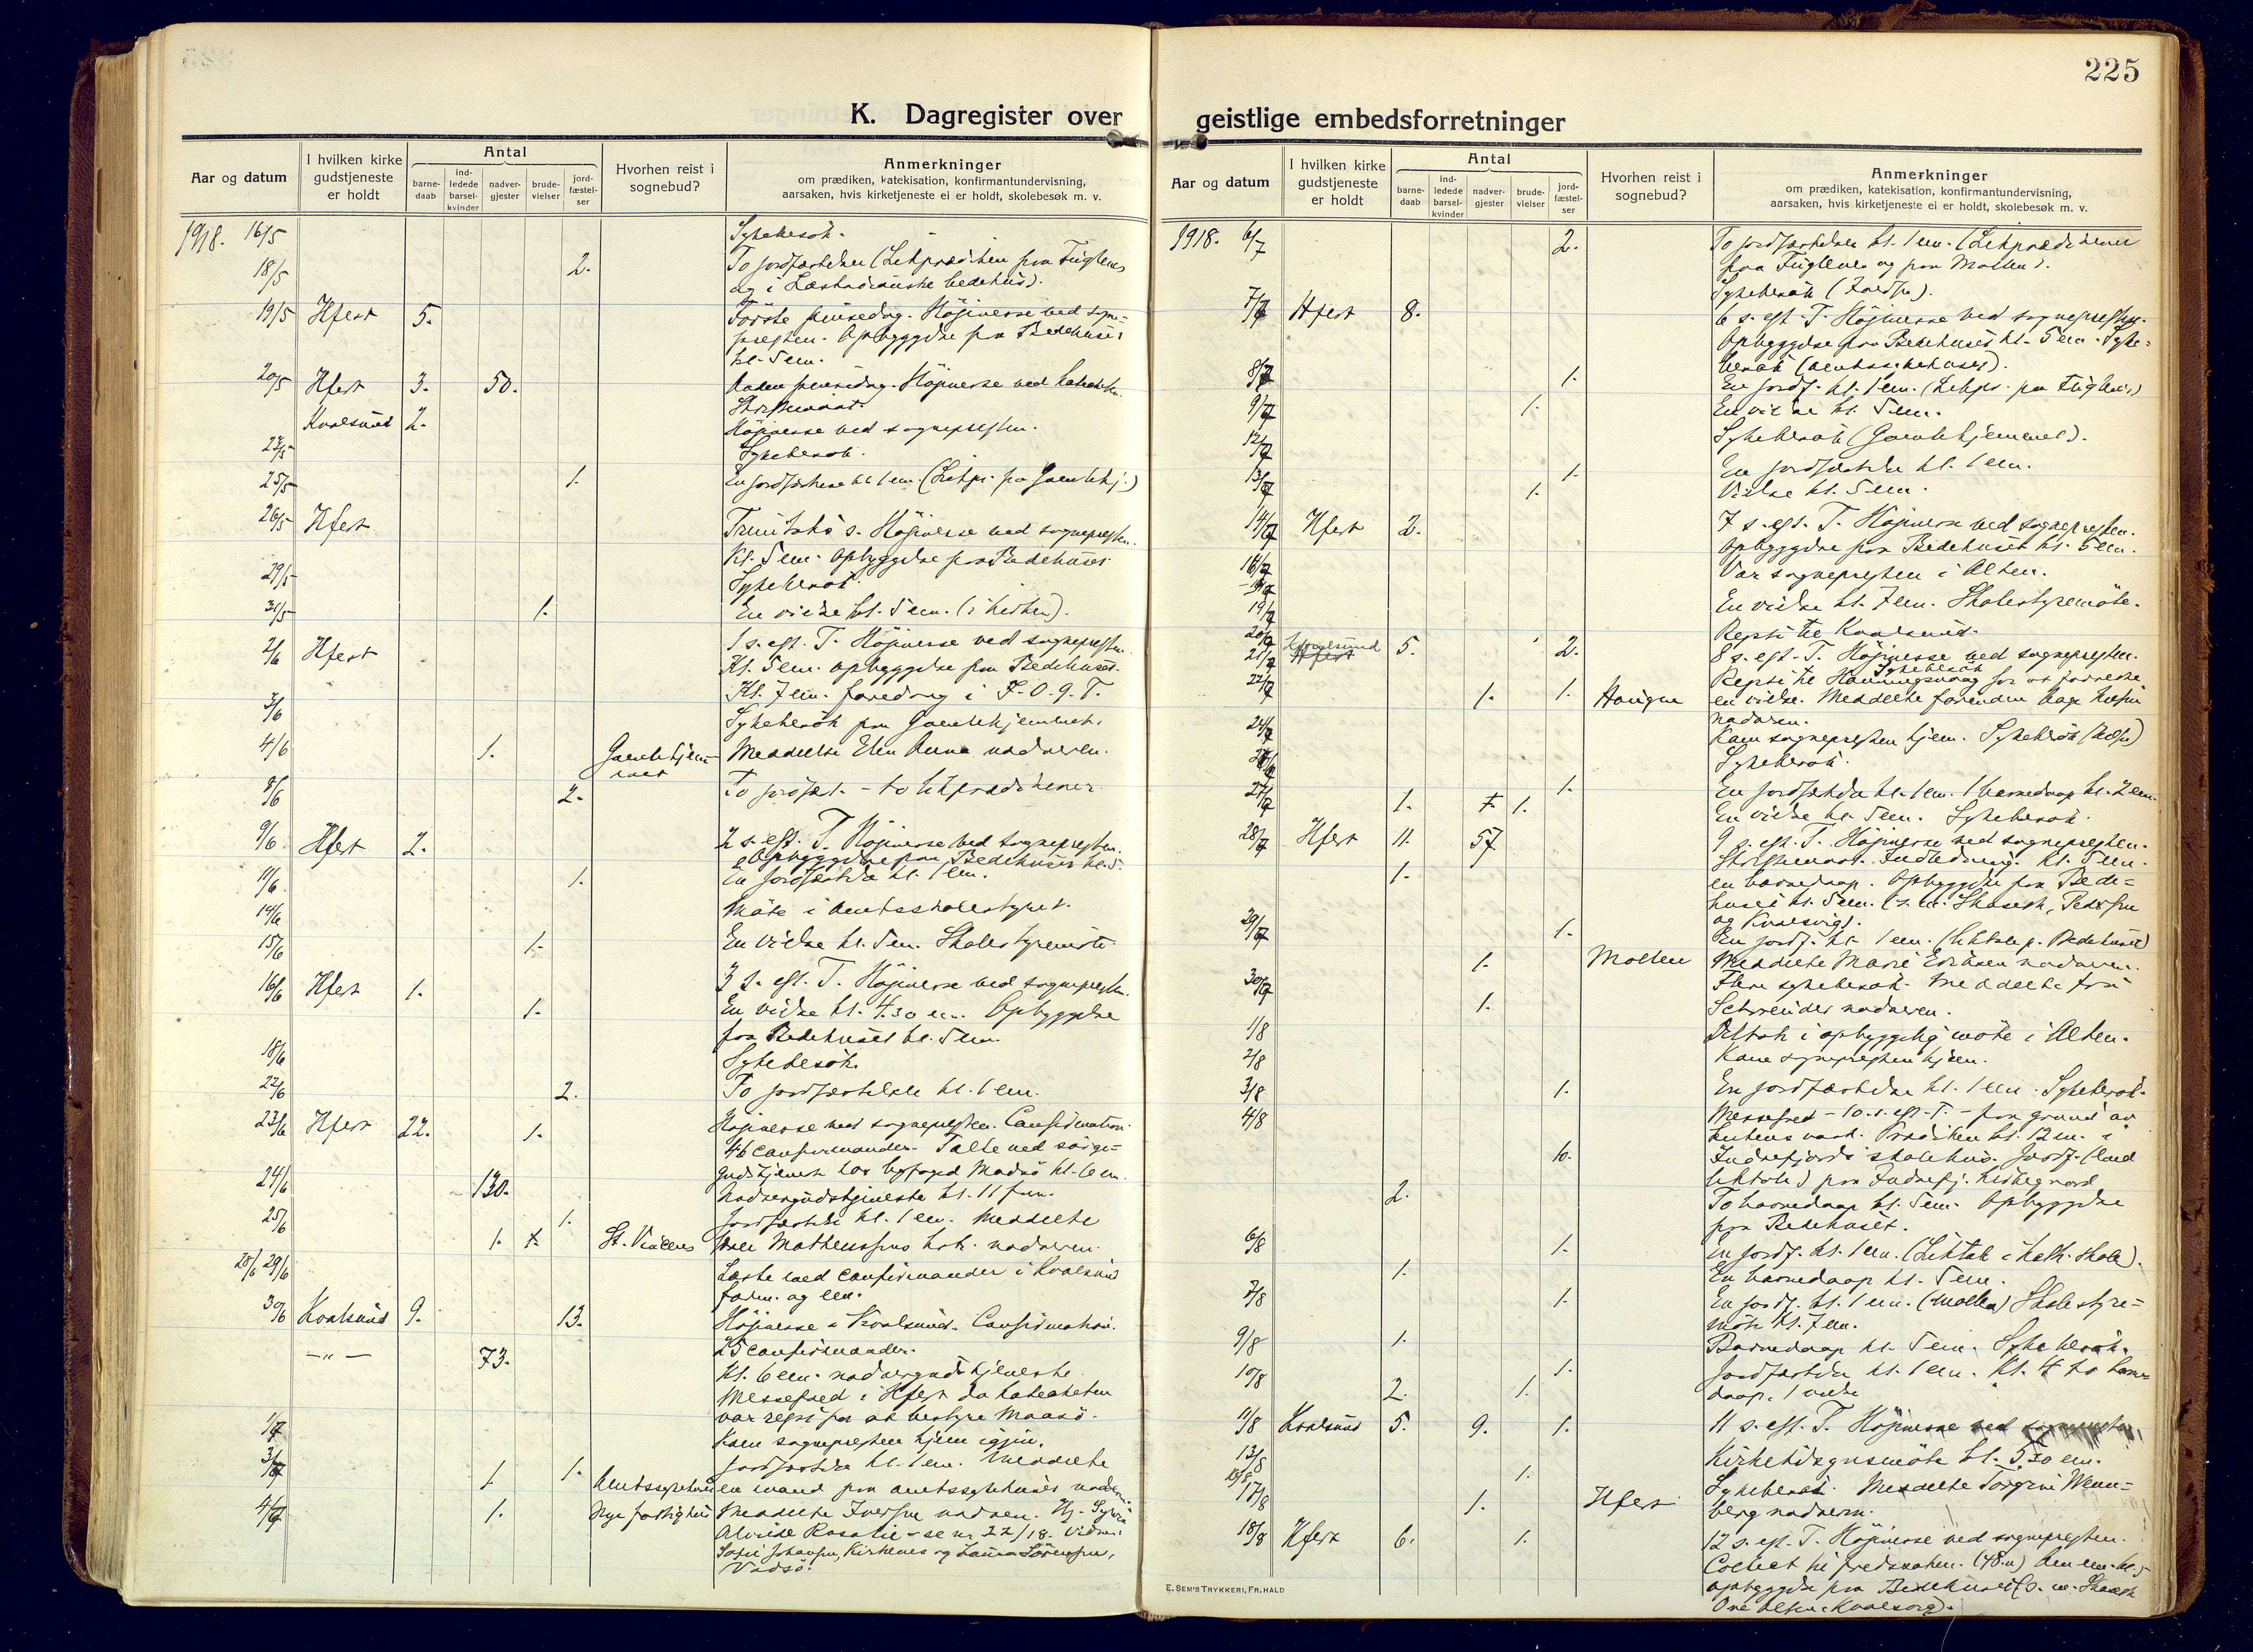 225
K. Dagregister over
geistlige embedsforretninger
Aar og datum
I hvilken kirke gudstjeneste er holdt
Antal
barne-daab
ind-ledede barsel-kvinder
nadver-gjester
brude-vielser
jord-fæstel-ser
Hvorhen reist i sognebud?
Anmerkninger
om prædiken, katekisation, konfirmantundervisning,
aarsaken, hvis kirketjeneste ei er holdt, skolebesøk m. v.
1918. 16/5 Sykebesök.
18/5 2. To jordfæstelser (Likprædiken paa Fuglenes
og i Læstadianske bedehus).
19/5 Hfest 5. Förste pinsedag. Höjmesse ved sogne-
presten. Opbyggelse paa Bedehuset
kl. 5 em.
20/5 Hfest 3. 50. Anden pinsedag. Höjmesse ved kateketen.
Skriftemaal.
Kvalsund 2. Höjmesse ved sognepresten.
Sykebesök.
25/5 1. En jordfæstelse kl 1 em. (Likpr. pa Gamlehj.)
26/5 Hfest Trinitatis s. Höjmesse ved sognepresten.
Kl. 5 em. Opbyggelse paa Bedehuset
29/5 Sykebesök.
31/5 1. En vielse kl. 5 em. (i kirken).
2/6 Hfest 1 s. eft. T. Höjmesse ved sognepresten
Kl. 5 em. opbyggelse paa Bedehuset.
Kl. 7 em. foredrag i I.O.G.T.
3/6 Sykebesök paa Gamlehjemmet.
4/6 1. Gamlehjem-met Meddelte Elen Anna nadveren.
8/6 2. To jordfæst. - to likprædikener.
9/6 Hfest 2. 2 s. eft. T. Höjmesse ved sognepresten.
Opbyggelse paa Bedehuset kl. 5.
11/6 1. En jordfæstelse kl. 1 em.
14/6 Möte i amtsskolestyret.
15/6 1. En vielse kl. 5 em. Skolestyremöte.
16/6 Hfest 1. 3 s. eft. T. Höjmesse ved sognepresten.
1. En vielse kl. 4.30 em. Opbyggelse
paa Bedehuset kl. 5 em.
18/6 Sykebesök.
22/6 2. To jordfæstelser kl. 1 em.
23/6 Hfest 22. 1. Höjmesse ved sognepresten. Confirmation.
46 confirmander. Talte ved sörge-
gudstjeneste
24/6 130. Nadvergudstjeneste kl. 11 fm.
25/6 1. Jordfæstelse kl. 1 em. Meddelte
1. St. Vincens nadveren.
28/6 29/6 Læste med confirmander i Kvalsund
form. og em.
30/6 Kvalsund 9. 13. Höjmesse i Kvalsund. Confirmation.
25 confirmander.
—„— 73. Kl. 6 em. nadvergudstjeneste.
Messefald i Hfest da kateketen
var reist for at bestyre Maasö.
1/7 Kom sognepresten hjem igjen.
3/7 1 1. Jordfæstelse kl. 1 em. Meddelte
Amtssykehuset en mand paa amtssykehuset nadveren.
4/7 1. Nye fattighus Meddelte Iversen nadveren. Hj.
Alvilde Rosalie - se nr 22/18. Vidner:
Sofie Johansen, Kirkenes og Laura Sörensen,
Vadsö.
Aar og datum
I hvilken kirke gudstjeneste er holdt
Antal
barne-daab
ind-ledede barsel-kvinder
nadver-gjester
brude-vielser
jord-fæstel-ser
Hvorhen reist i sognebud?
Anmerkninger
om prædiken, katekisation, konfirmantundervisning,
aarsaken, hvis kirketjeneste ei er holdt, skolebesøk m. v.
1918. 6/7 2. To jordfæstelser kl. 1 em. (Likprædikener
paa Fuglenes og paa Mollen).
Sykebesök
7/7 Hfest 8. 6 s. eft. T. Höjmesse ved sognepresten.
Opbyggelse paa Bedehuset kl. 5 em. Syke-
besök (amtssykehuset).
8/7 1. En jordf. kl. 1 em. (Likpr. paa Fuglenes)
9/7 1. En vielse kl. 5 em.
12/7 Sykebesök (Gamlehjemmet).
13/7 1. En jordfæstelse kl. 1 em.
1. Vielse kl. 5 em.
14/7 Hfest 2. 7 s. eft. T. Höjmesse ved sognepresten.
Opbyggelse paa Bedehuset kl. 5 em.
16/7 Var sognepresten i Alten.
19/7 En vielse kl. 7 em. Skolestyremöte.
20/7 Reiste til Kvalsund.
21/7 Kvalsund 5. 2. 8 s. eft. T. Höjmesse ved sognepresten.
Sykebesök
22/7 1. 1. Haugen Reiste til Honningsvaag for at forrette
en vielse. Meddelte
nadveren.
24/7 Kom sognepresten hjem. Sykebesök
Sykebesök.
27/7 1. 1. 1. En jordfæstelse kl. 1 em. 1 barnedaap kl. 2 em.
En vielse kl. 5 em. Sykebesök.
28/7 Hfest 11. 57 9 s. eft. T. Höjmesse ved sognepresten.
Skriftemaal. Indledning. Kl. 5 em.
1. en barnedaap. Opbyggelse paa Bede-
huset kl. 5 em.
og Kvalsvig).
29/7 1. En jordf. kl. 1 em. (liktale p. Bedehuset)
1. Mollen Meddelte Marie Eriksen nadveren.
30/7 Flere sykebesök. Meddelte fru
1. Schreuder nadveren.
1/8 Deltok i opbyggelig möte i Alten.
2/8 Kom sognepresten hjem.
3/8 1. En jordfæstelse kl. 1 em. Sykebesök.
4/8 Messefred - 10. s. eft. T. - paa grund av
Prædiken kl. 12 m. i
10. Indrefjords skolehus. Jordf. (med
liktale) paa Indrefj. kirkegaard
2. To barnedaap kl. 5 em. Opbyggelse
paa Bedehuset.
6/8 1. En jordf. kl. 1 em. (Liktale i kath. skole).
1. En barnedaap kl. 5 em.
7/8 1. En jordf. kl. 1 em. (Mollen) Skolestyre-
möte kl. 7 em.
9/8 1. Barnedaap kl. 5 em. Sykebesök.
10/8 1. Jordfæstelse kl. 1 em. Kl. 4 to barne-
2. 1. daap. 1 vielse
11/8 Kvalsund 5. 9. 1. 11 s. eft. T. Höjmesse
13/8 Kirketidsynsmöte kl. 5.30 em.
15/8 1. Sykebesök. Meddelte
17/8 1. Hfest nadveren.
18/8 Hfest 6. 1. 12 s. eft. T. Höjmesse ved sognepresten.
Collect til fredssaken.
opbyggelse paa Bedehuset
E. SEM'S TRYKKERI, FR.HALD